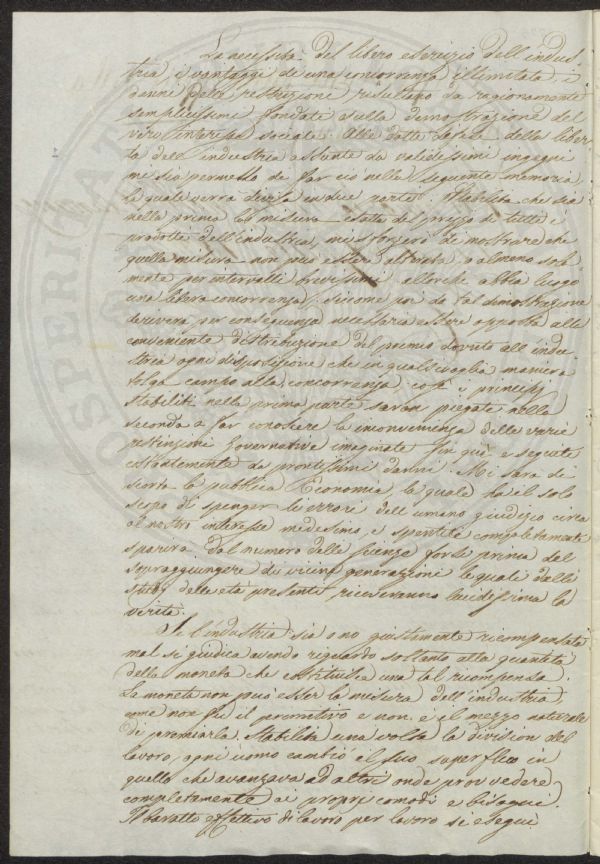 La necessità del libero esercizio dell'indus-
tria, i vantaggi de una concorrenza illimitata, i
danni delle restrizioni risultano da ragionamente
semplicissimi fondate sulla dimostrazione del
vero interesse sociale. Alle dotte difese della liber
ta dell'industria assunte da validissimi ingegni
mi sia permesso di far ciò nella seguente memoria
la quale verrà divisa in due parti. Stabilita che sia
nella prima la misura esatta del prezzo di tutti i
prodotti dell'industria, mi sforzerò di mostrare che
quella misura non può essere alterata, o almeno sola
mente per intervalli brevissimi allorché abbia luogo
una libera concorrenza; siccome poi da tal dimostrazione
deriverà per conseguenza necessaria essere opposta alla
conveniente distribuzione del premio dovuto all'indu-
stria ogni disposizione che in qualsivoglia maniera
tolga campo alla concorrenza, così i principj
stabiliti nella prima parte saran piegati nella
seconda a far conoscere la inconvenienza delle varie
restrizioni governative imaginate fin quì e seguite
costantemente da prontissimi danni. Mi sarà di
scorta la pubblica Economia, la quale ha il solo
scopo di spenger li errori dell'umano giudizio circa
ai nostri interessi medesimi, e spentili completamente
sparirà dal numero delle scienze forse prima del
sopraggiungere di vicine generazioni le quali dalli
studj delle età presenti riceveranno lucidissima la
verità.
Se l'industria sia o no giustamente ricompensata
mal si giudica avendo riguardo soltanto alla quantità
della moneta che costituisce una tal ricompensa.
La moneta non può esser la misura dell'industria,
come non fu il primitivo e non è il mezzo naturale
di premiarla. Stabilita una volta la division del
lavoro, ogni uomo cambiò il suo superfluo in
quello che avanzava ad altri onde provvedere
completamente ai proprj comodi e bisogni.
Il baratto effettivo di lavoro per lavoro si eseguì